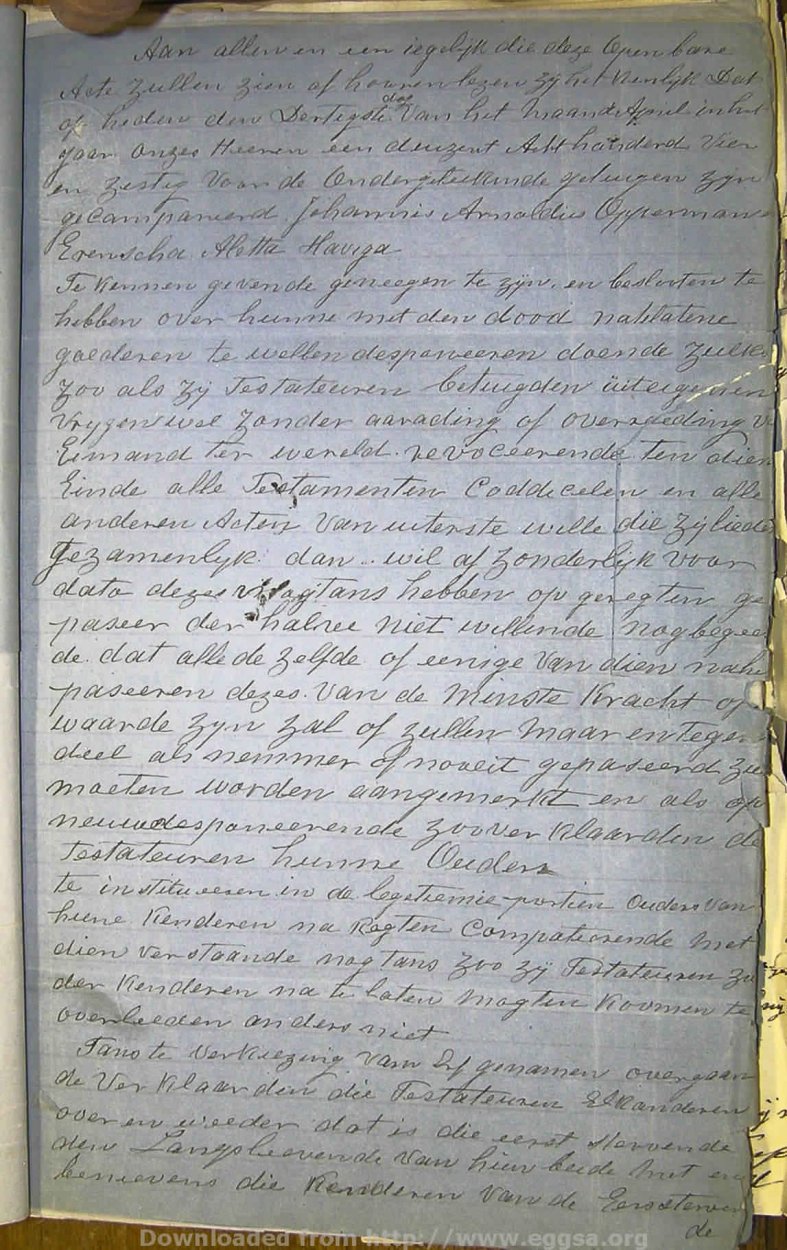 Aan allen en een iegelijk die deze Openbare
Acte zullen zien of hooren lezen zij het kenlijk Dat
op heden den Dertigste dag Van het maand April in het
jaar onzes Heeren een duizent Acht honderd Vier
en Zestig Voor de Ondergeteekende getuigen zyn
gecompareerd Johannis Arnoldus Opperman
Evenscha Aletta Haviga
Te kennen gevende geneegen te zijn, en besloten te
hebben over hunne met den dood natelatene
goederen te wellen desponeeren doende Zulks
zoo als zij Testateuren betuigden uit eigenen
Vrygen wel Zonder aanrading of overreeding V
Eimand ter wereld. revoceerende ten dien
Einde alle Testamenten Coddecelen en alle
anderen Acten Van uiterste wille die Zij lieden
Gezamenlijk dan wil of Zonderlijk voor
dato dezes nogtans hebben op geregten ge
paseer der halve niet willende nog begee
de. dat alle de Zelfde of eenige Van dien nahe
paseeren dezes. Van de Minste Kracht of
waarde zyn zal of zullen maar en tegen
deel als nemmer of nooeit gepaseerd zu
moeten worden aangemerkt en als op
neuw desponeerende zoo verklaarden de
Testateuren hunne Ouders
te institueeren in de legetiemie portien Ouders Van
hune Kenderen na Regten Compateerende met
dien verstaande nogtans zoo zij Testateuren Zo
der Kenderen na te laten mogten Koomen te
overleeden anders niet
Tans te verkiezing Van Erf genamen overgaan
de Verklaarden die Testateuren Elkanderen
over en weeder dat is die eerst stervende
den Langsleevende Van hun beide met en
beneevens die Kenderen Van de Eersterven
de
Downloaded from http://www.eggsa.org